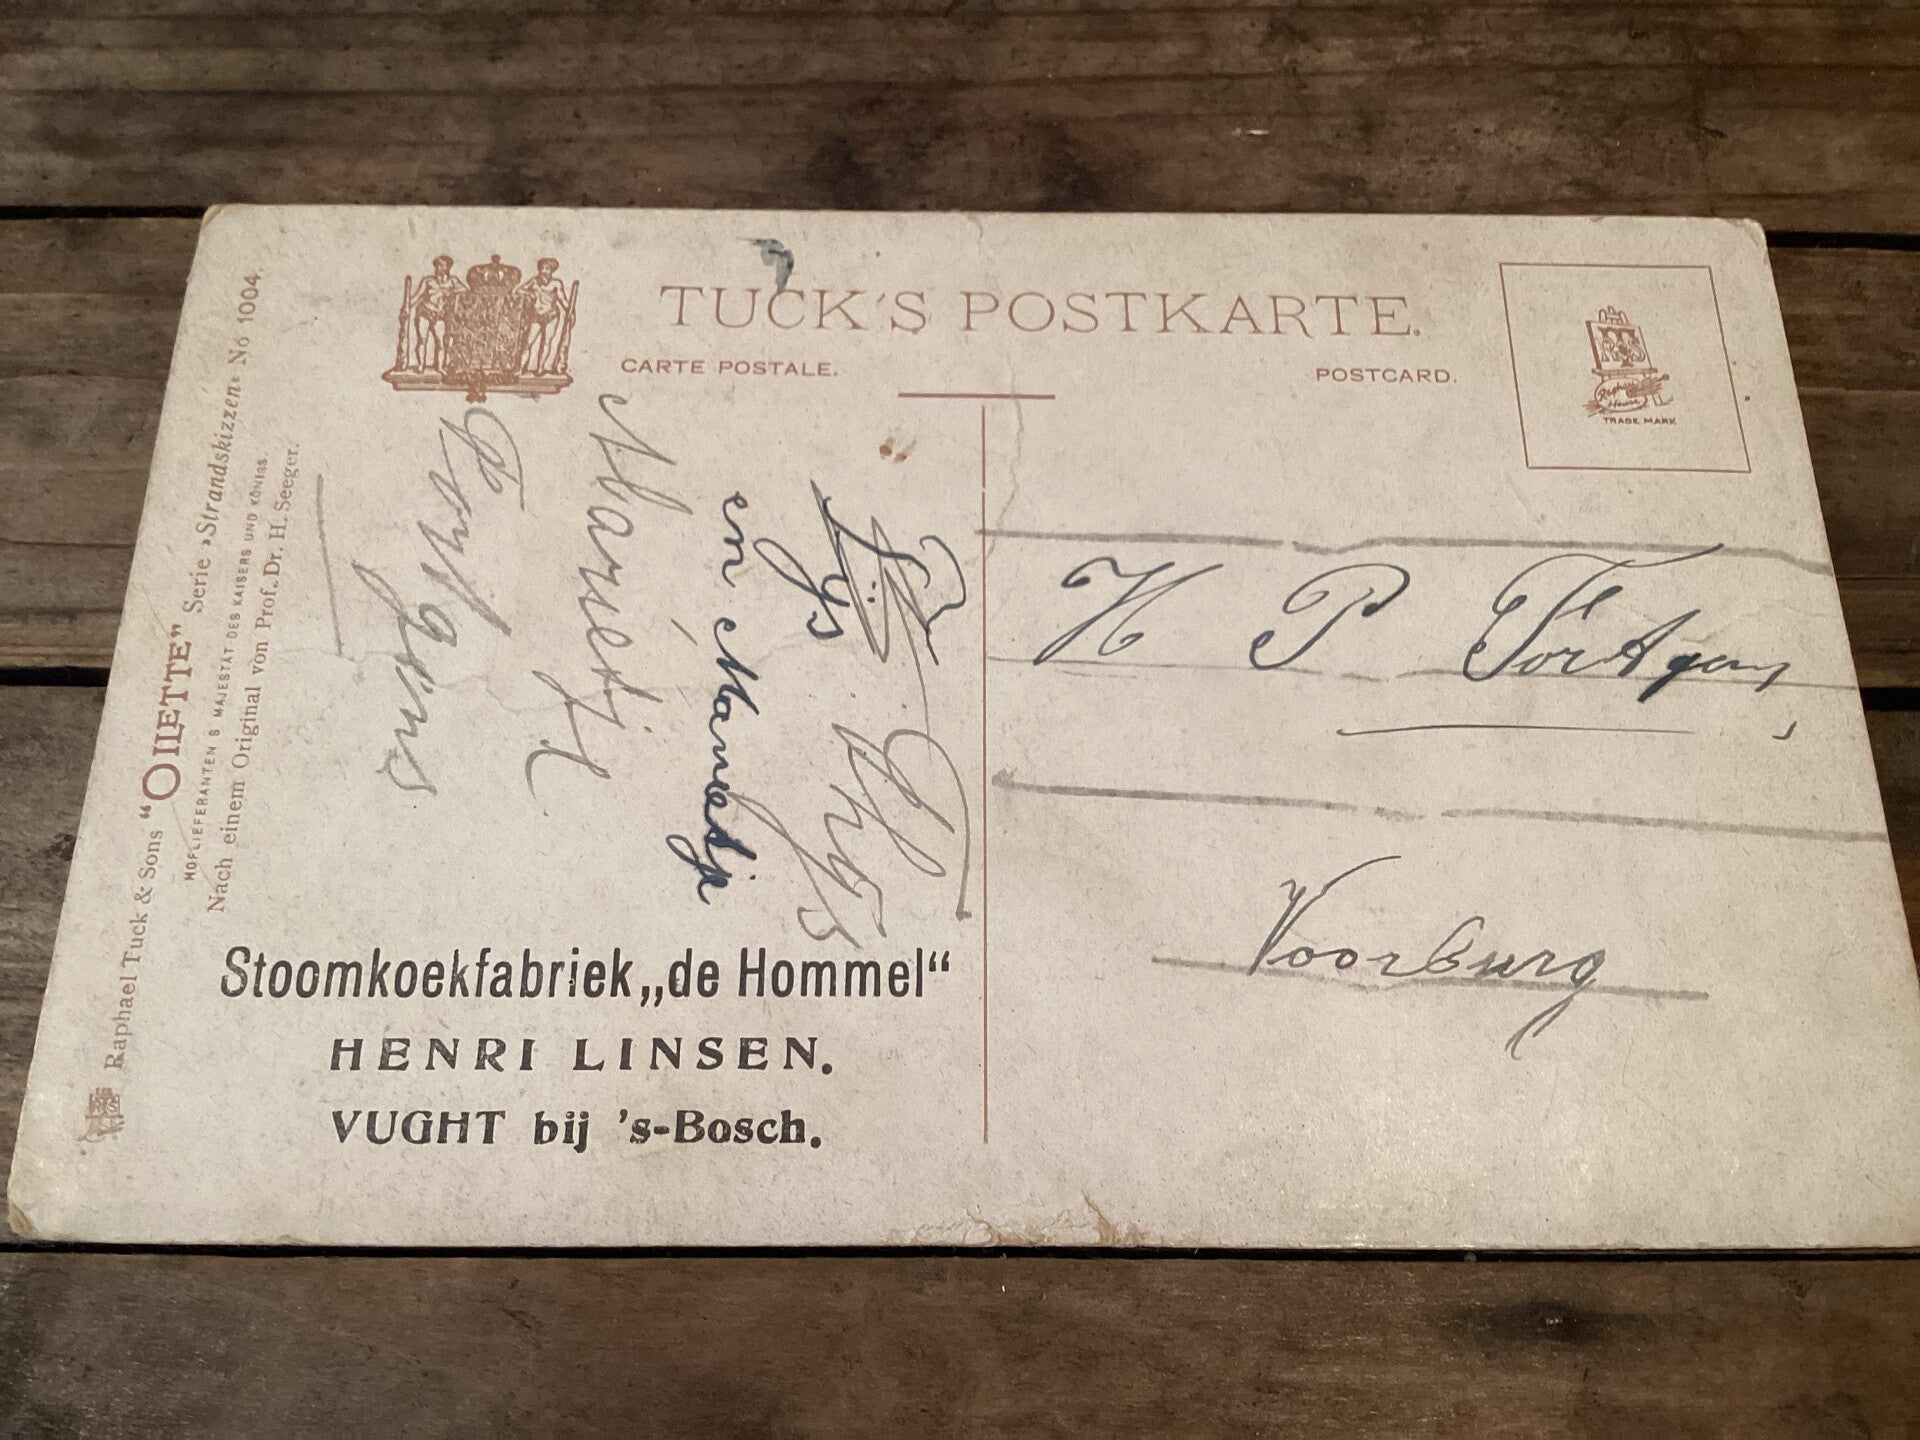 TUCK'S POSTKARTE.
CARTE POSTALE.
POSTCARD.
TRADE MARK
Raphael Tuck & Sons “OILETTE” Serie »Strandskizzen« No 1004.
HOFLIEFERANTEN S MAJESTÄT DES KAISERS UND KÖNIGS.
Nach einem Original von Prof. Dr. H. Seeger.
en Marietje
Marietje
H P
Voorburg
Stoomkoekfabriek „de Hommel“
HENRI LINSEN.
VUGHT bij 's-Bosch.